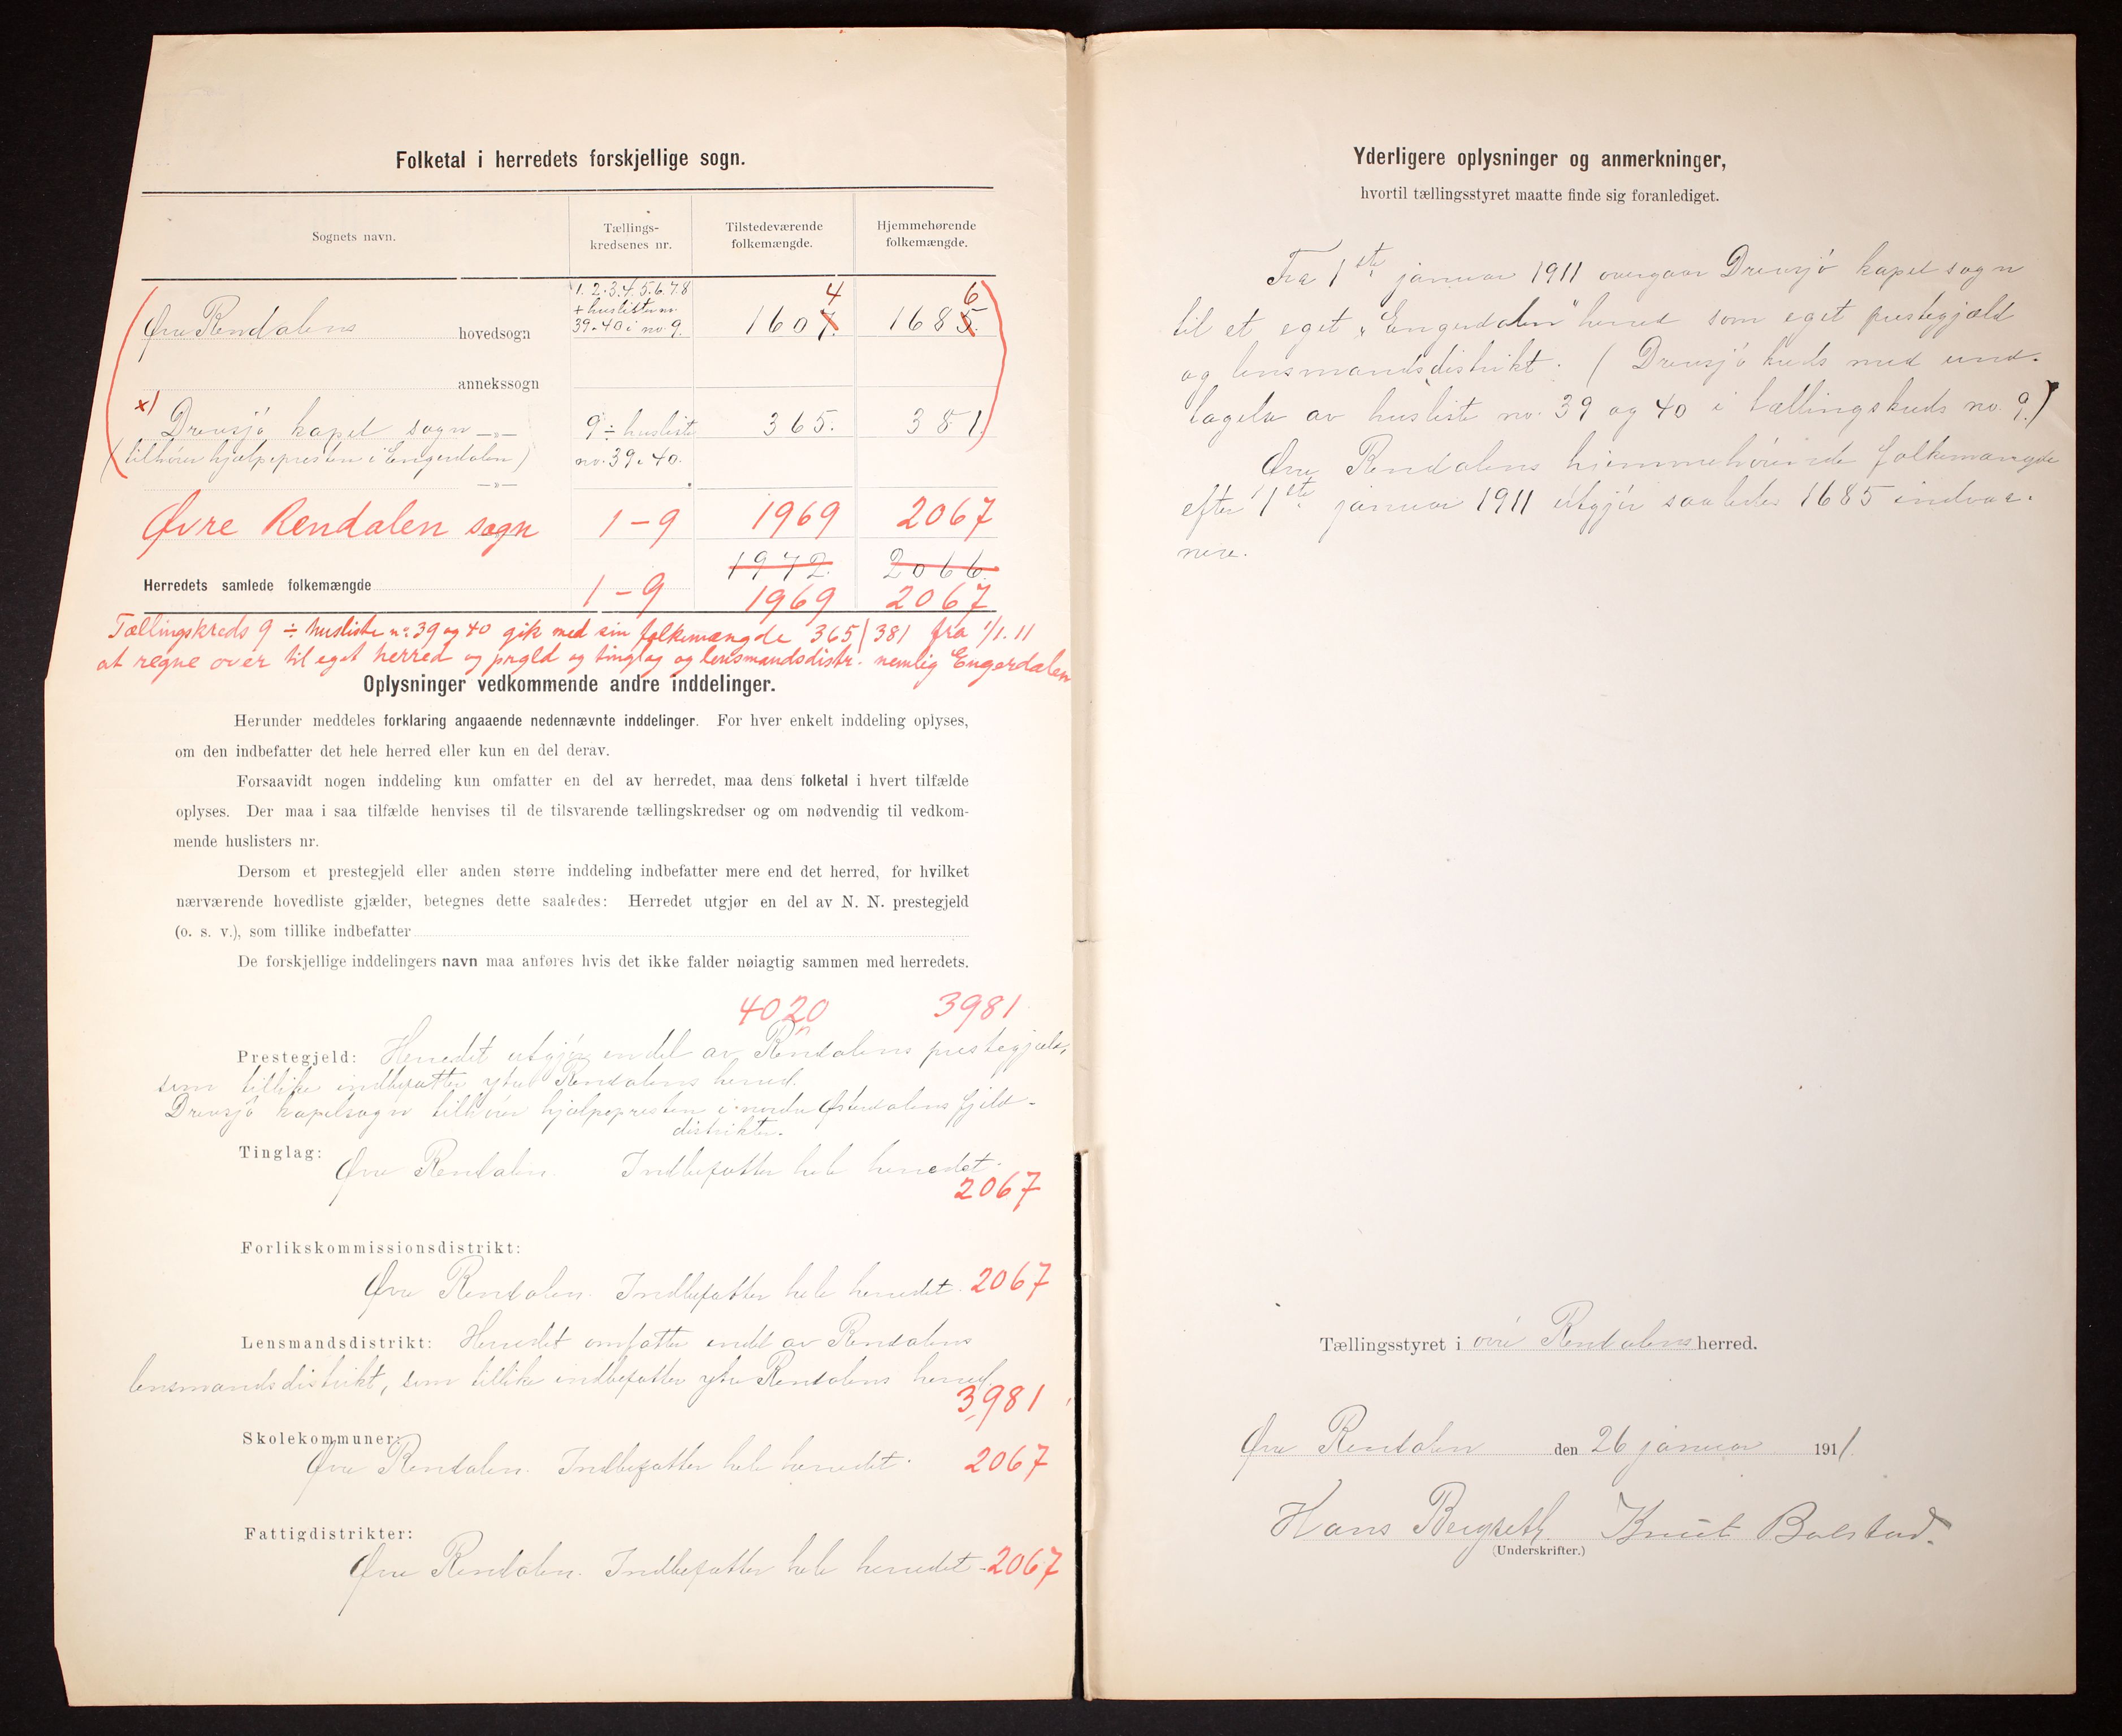 Folketal i herredets forskjellige sogn.
Sognets navn.
Tællings-
kredsenes nr.
Tilstedeværende
folkemængde.
Hjemmehørende
folkemængde.
1.2.3.4.5.6.7.8
+ huslister nr.
39.40 i no 9.
4
6
Øvre Rendalens hovedsogn
1607.
1685.
annekssogn
x)
Drevsjö kapel sogn —„—
9 ÷ husliste
365.
381.
(tilhörer hjælpepresten i Engerdalen)
no. 39.40.
—»—
Øvre Rendalen sogn 1-9 1969 2067
1972. 2066.
Herredets samlede folkemængde 1-9 1969 2067
Tællingskreds 9 ÷ husliste no 39 og 40 gik med sin folkemængde 365/381 fra 1/1.11
at regne over til eget herred og prgld og tinglag og lensmandsdistr. nemlig Engerdalen
Oplysninger vedkommende andre inddelinger.
Herunder meddeles forklaring angaaende nedennævnte inddelinger. For hver enkelt inddeling oplyses,
om den indbefatter det hele herred eller kun en del derav.
Forsaavidt nogen inddeling kun omfatter en del av herredet, maa dens folketal i hvert tilfælde
oplyses. Der maa i saa tilfælde henvises til de tilsvarende tællingskredser og om nødvendig til vedkom-
mende huslisters nr.
Dersom et prestegjeld eller anden større inddeling indbefatter mere end det herred, for hvilket
nærværende hovedliste gjælder, betegnes dette saaledes: Herredet utgjør en del av N. N. prestegjeld
(o. s. v.), som tillike indbefatter
De forskjellige inddelingers navn maa anføres hvis det ikke falder nøiagtig sammen med herredets.
4020 3981
Prestegjeld: Herredet utgjör endel av Rendalens prestegjæld,
som tillike indbefatter ytre Rendalens herred.
Drevsjö kapelsogn tilhörer hjælpepresten i nordre Østerdalens fjeld-
distrikter.
Tinglag: Øvre Rendalen. Indbefatter hele herredet.
2067
Forlikskommissionsdistrikt:
Øvre Rendalen. Indbefatter hele herredet. 2067
Lensmandsdistrikt: Herredet omfatter endel av Rendalens
lensmandsdistrikt, som tillike indbefatter ytre Rendalens herred.
3981
Skolekommuner:
Øvre Rendalen. Indbefatter hele herredet. 2067
Fattigdistrikter:
Øvre Rendalen. Indbefatter hele herredet. 2067
Yderligere oplysninger og anmerkninger,
hvortil tællingsstyret maatte finde sig foranlediget.
Fra 1ste januar 1911 overgaar Drevsjö kapel sogn
til et eget „Engerdalen" herred som eget prestegjæld
og lensmandsdistrikt. (Drevsjö kreds med und-
tagelse av husliste no. 39 og 40 i tællingskreds no. 9.)
Øvre Rendalens hjemmehörende folkemængde
efter 1ste januar 1911 utgjör saaledes 1685 indvaa-
nere.
Tællingsstyret i övre Rendalens herred.
Øvre Rendalen den 26 januar 1911.
Hans Bergseth. Knut Bolstad.
(Underskrifter.)